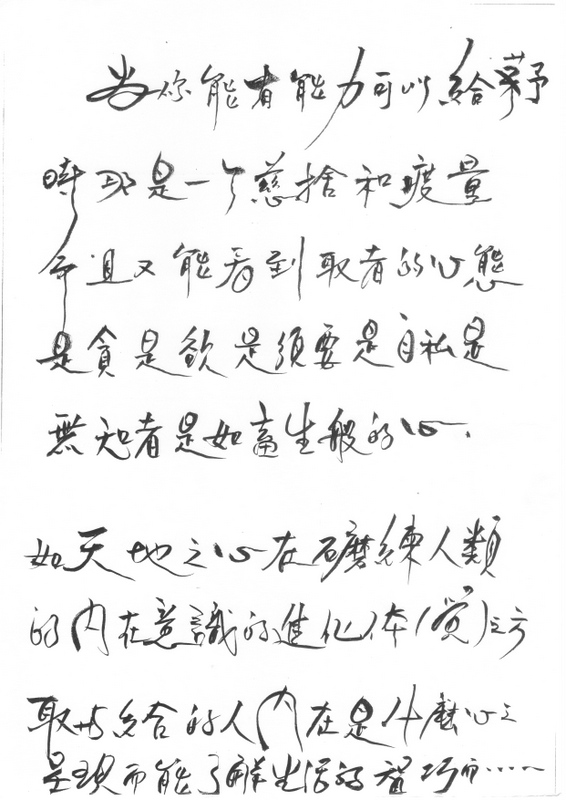 當你能有能力可以給予
時那是一个慈捨和度量
而且又能看到取者的心態
是貪是欲是須要是自私是
無知者是如畜生般的心.
如天地之心在磨練人類
的內在意識的進化体(覺)之方
取与給的人內在是什麼心之
呈現而能了解生活的智巧而……